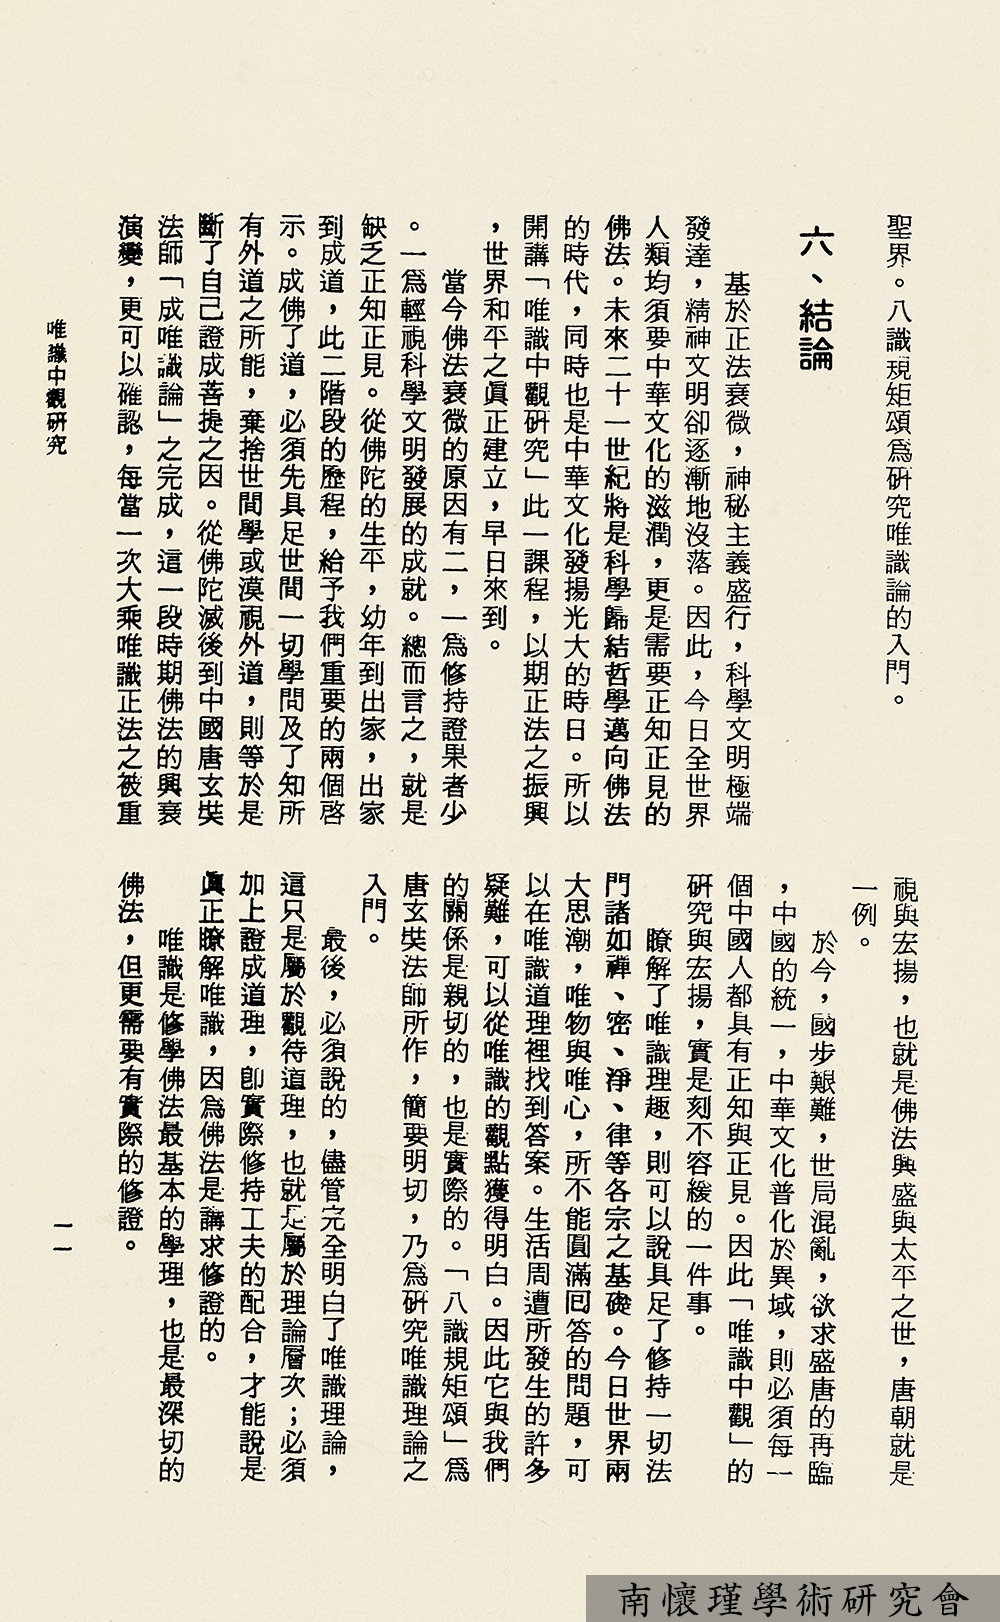 聖界。八識規矩頌爲研究唯識論的入門。
六、結論
基於正法衰微，神秘主義盛行，科學文明極端
發達，精神文明卻逐漸地沒落。因此，今日全世界
人類均須要中華文化的滋潤，更是需要正知正見的
佛法。未來二十一世紀將是科學歸結哲學邁向佛法
的時代，同時也是中華文化發揚光大的時日。所以
開講「唯識中觀研究」此一課程，以期正法之振興
，世界和平之眞正建立，早日來到。
當今佛法衰微的原因有二，一爲修持證果者少
。一爲輕視科學文明發展的成就。總而言之，就是
缺乏正知正見。從佛陀的生平，幼年到出家，出家
到成道，此二階段的歷程，給予我們重要的兩個啓
示。成佛了道，必須先具足世間一切學問及了知所
有外道之所能，棄捨世間學或漠視外道，則等於是
斷了自己證成菩提之因。從佛陀滅後到中國唐玄奘
法師「成唯識論」之完成，這一段時期佛法的興衰
演變，更可以確認，每當一次大乘唯識正法之被重
視與宏揚，也就是佛法興盛與太平之世，唐朝就是
一例。
於今，國步艱難，世局混亂，欲求盛唐的再臨
，中國的統一，中華文化普化於異域，則必須每一
個中國人都具有正知與正見。因此「唯識中觀」的
研究與宏揚，實是刻不容緩的一件事。
瞭解了唯識理趣，則可以說具足了修持一切法
門諸如禪、密、淨、律等各宗之基礎。今日世界兩
大思潮，唯物與唯心，所不能圓滿回答的問題，可
以在唯識道理裡找到答案。生活周遭所發生的許多
疑難，可以從唯識的觀點獲得明白。因此它與我們
的關係是親切的，也是實際的。「八識規矩頌」爲
唐玄奘法師所作，簡要明切，乃爲研究唯識理論之
入門。
最後，必須說的，儘管完全明白了唯識理論，
這只是屬於觀待道理，也就是屬於理論層次；必須
加上證成道理，卽實際修持工夫的配合，才能說是
眞正瞭解唯識，因爲佛法是講求修證的。
唯識是修學佛法最基本的學理，也是最深切的
佛法，但更需要有實際的修證。
唯識中觀研究
一一
南懷瑾學術研究會